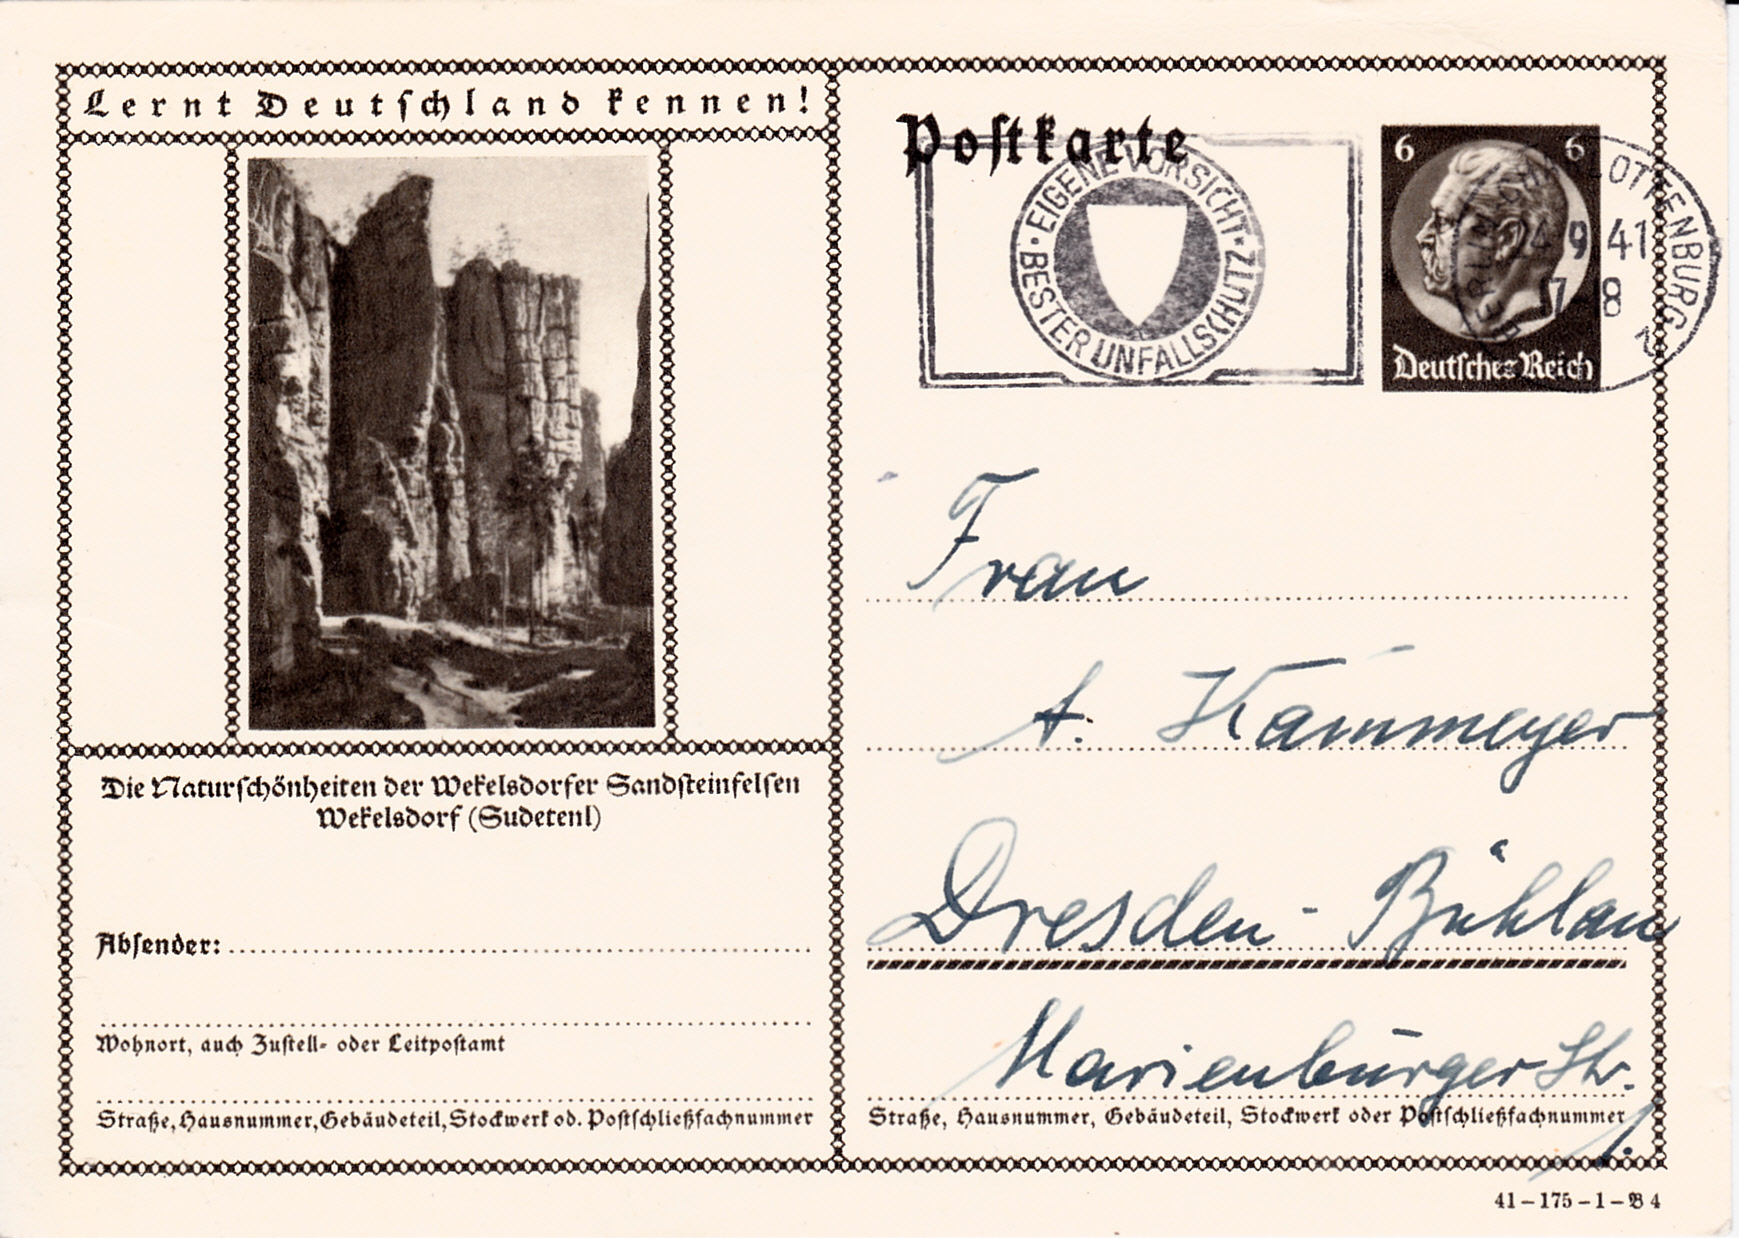 Lernt Deutschland kennen!
Die Naturschönheiten der Wekelsdorfer Sandsteinfelsen
Wekelsdorf (Sudetenl)
Absender:
Wohnort, auch Zustell- oder Leitpostamt
Straße, Hausnummer, Gebäudeteil, Stockwerk od. Postschließfachnummer
Postkarte
EIGENE VORSICHT · BESTER UNFALLSCHUTZ ·
6 6
Deutsches Reich
LOTTENBURG 2
9 41
8
Frau
A. Kammeyer
Dresden - Bühlau
Marienburger Str.
1.
Straße, Hausnummer, Gebäudeteil, Stockwerk oder Postschließfachnummer
41-175-1-B 4